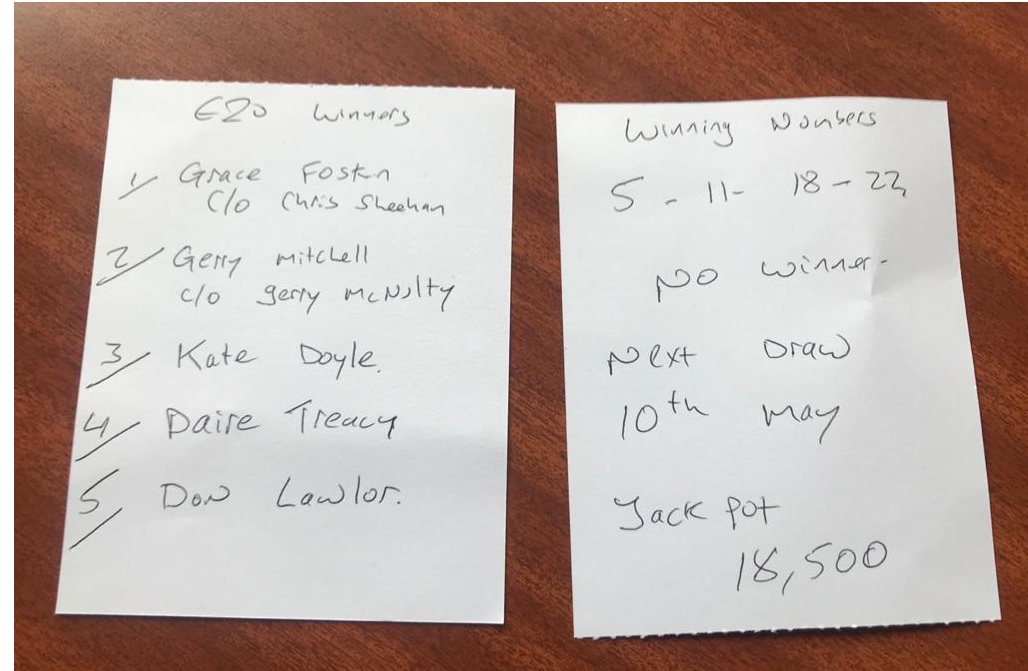 €20 Winners
1/ Grace Foskin
C/o Chris Sheehan
2/ Gerry Mitchell
c/o gerry McNulty
3/ Kate Doyle.
4/ Daire Treacy
5/ Don Lawlor.
Winning Numbers
5 - 11 - 18 - 22
No winner.
Next Draw
10th May
Jackpot
18,500